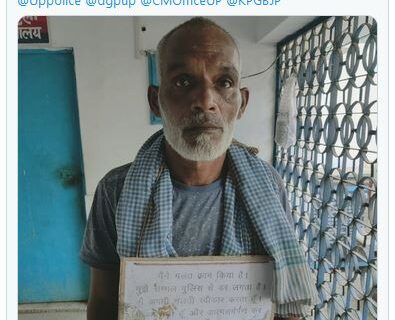 @Uppolice @dgpup @CMOfficeUP @KPGBJP
मैंने गलत काम किया है।
मुझे सम्भल पुलिस से डर लगता है।
मैं अपनी गलती स्वीकार करता हूँ।
हूँ और आत्मसमर्पण कर